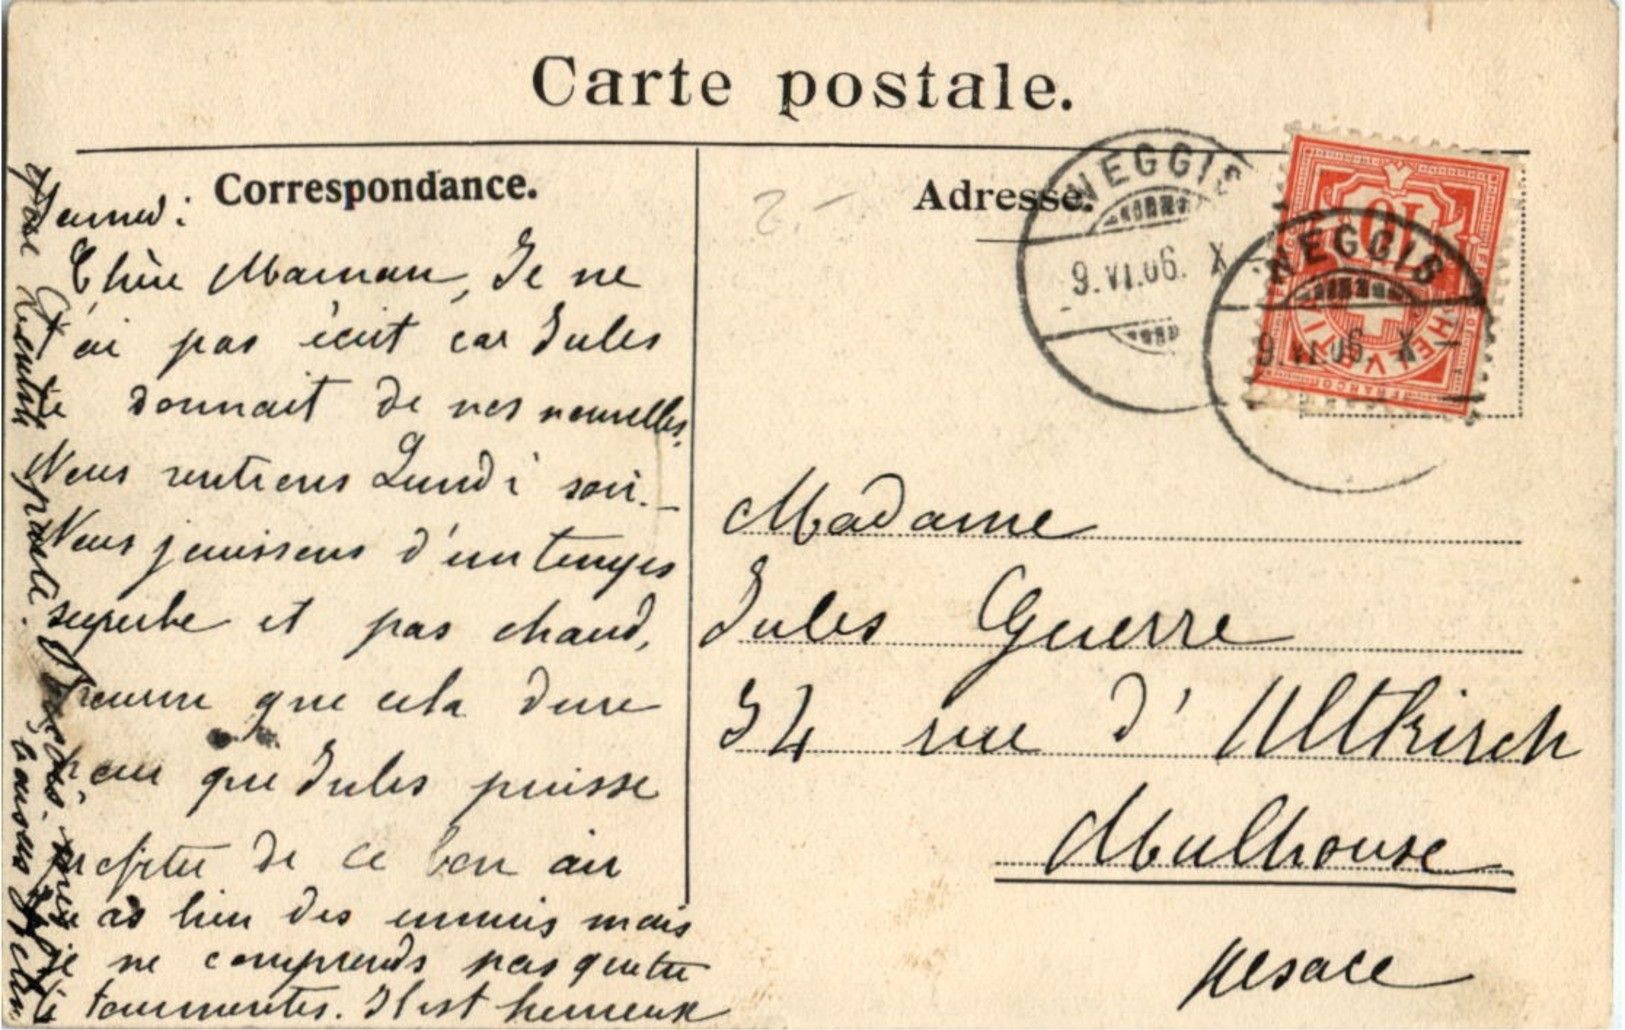 Carte postale.
Correspondance.
Samedi:
Chère Maman, Je ne
t'ai pas écrit car Jules
te donnait de nos nouvelles.
Nous rentrons Lundi soir. –
Nous jouissons d'un temps
superbe et pas chaud,
pourvu que cela dure
pour que Jules puisse
profiter de ce bon air
Tu as bien des ennuis mais
je ne comprends pas que tu
te tourmentes. Il est heureux
que
petite
parte.
baisers
Adresse.
2.-
WEGGIS
9.VI.06. X
WEGGIS
9.VI.06. X
10
HELVETIA
FRANCO
Madame
Jules Guerre
34 rue d'Altkirch
Mulhouse
Alsace